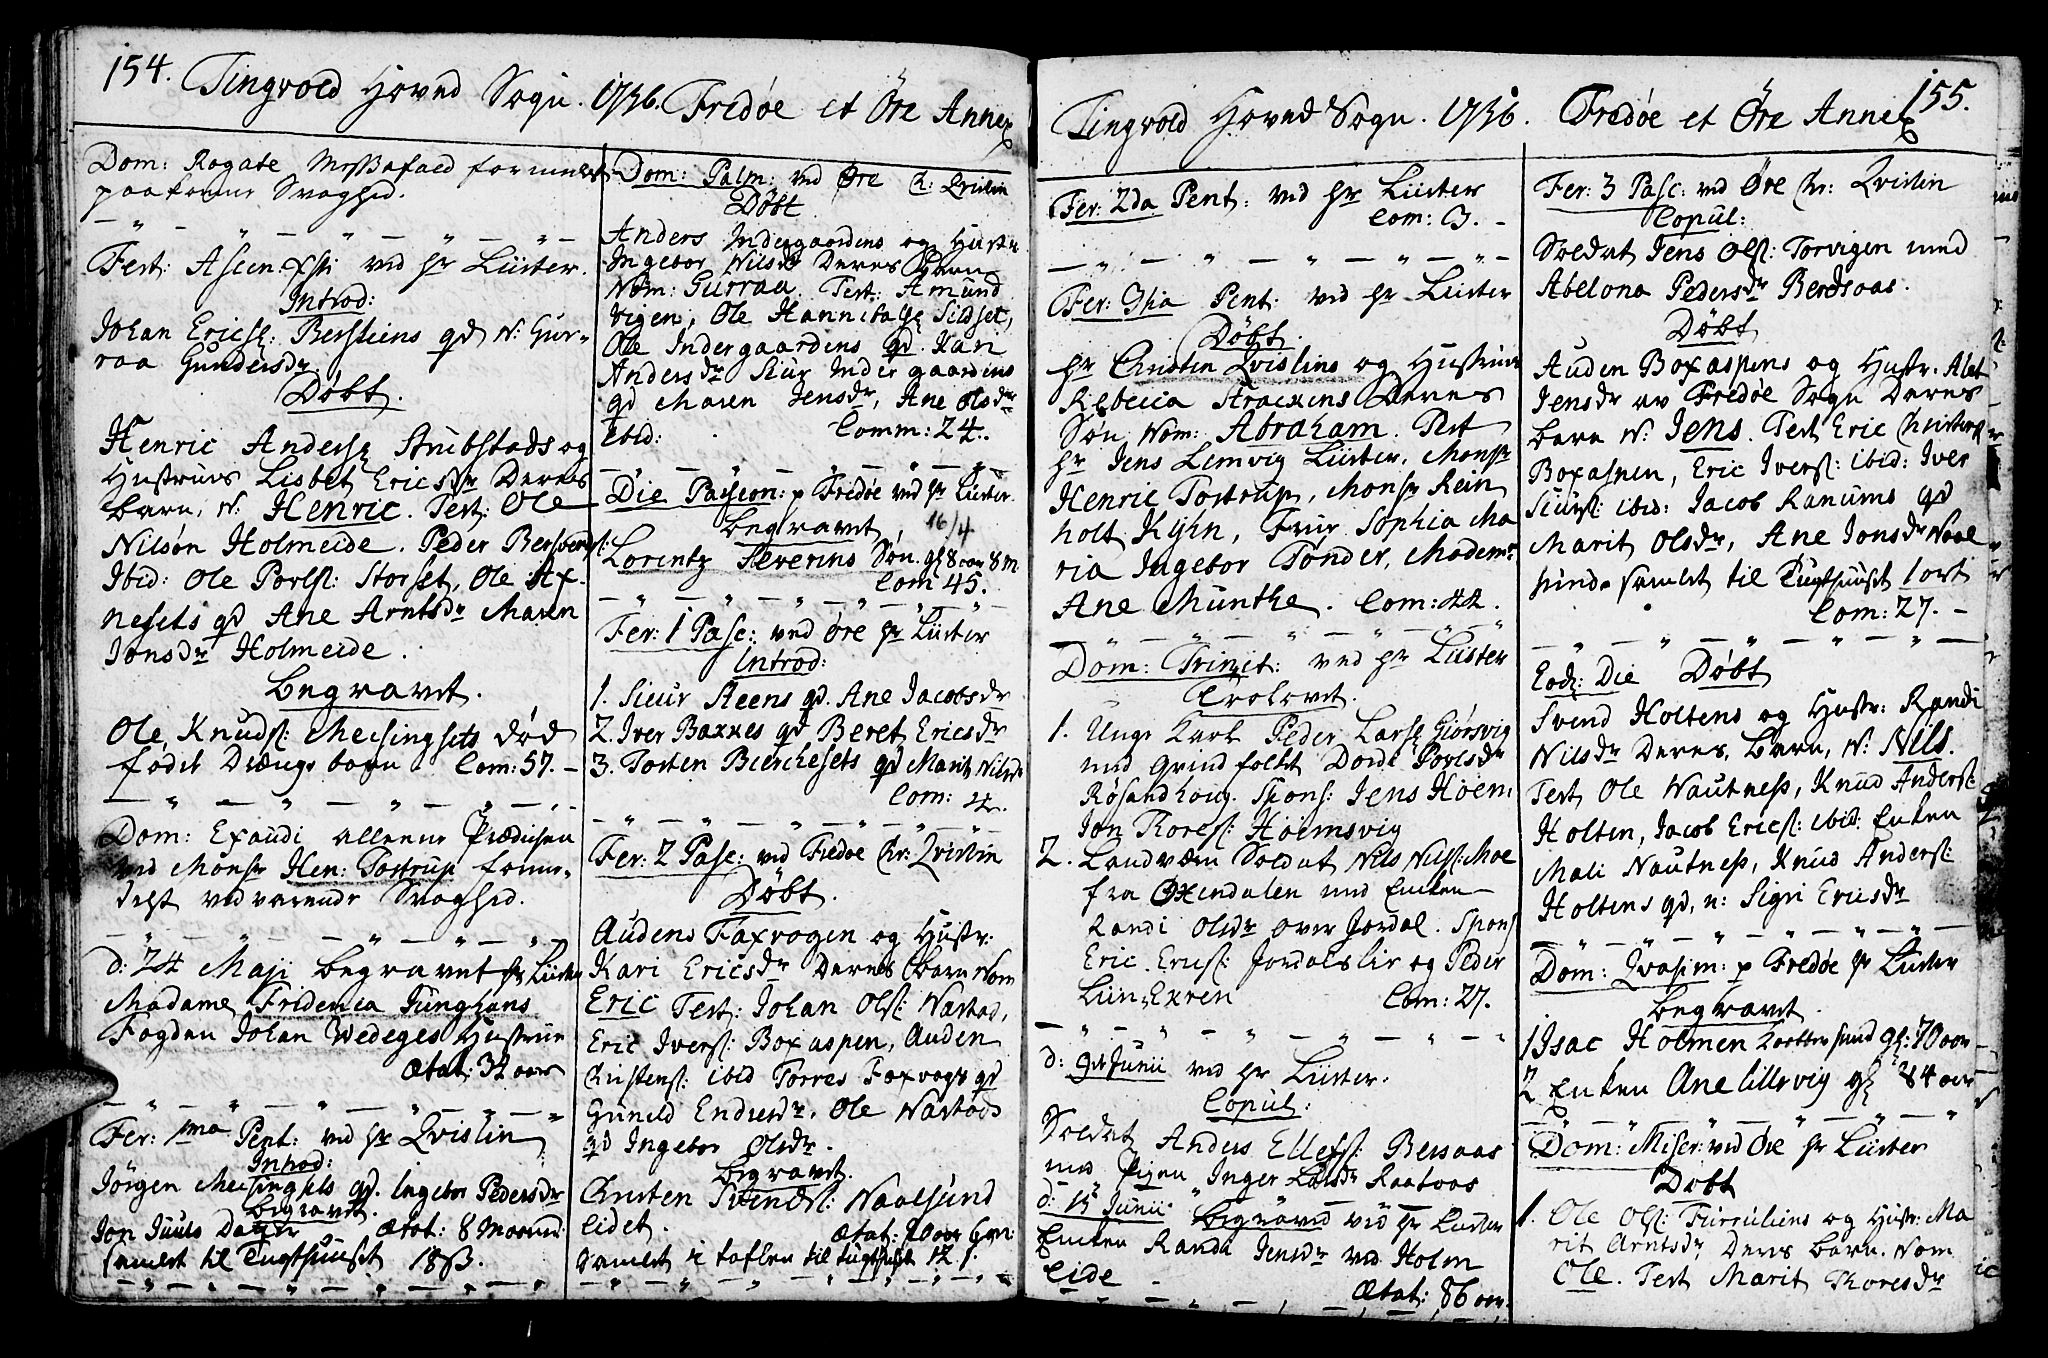 154. Tingvold Hoved Sogn. 1736. Fredøe et Øre Annex
Dom: Rogate Messefald formedelst
paakomne Svaghed.
Fest: Ascen: Xsti ved hr Lüster.
Introd:
Johan Erics: Berstiens qd N: Gur-
raa Gundersdr.
Døbt.
Henric Anders Stubstads og
Hustrues Lisbet Ericsdr Deres
barn, N: Henric. Test: Ole
Nilsøn Holmeide. Peder
Ibid: Ole Povls: Storset, Ole Ax-
nesets qd Ane Arntsdr Maren
Jonsdr Holmeide.
begravet.
Ole Knuds: Meisingsets død
fødit Drengebarn. Com: 57.
Dom: Exaudi alleene Prædiken
ved Monsr Hen: Tostrup formedelst
vedvarende Svaghed.
d: 24 Maji begravet hr Lüster
Madame Friderica Junghans
Fogden Johan Wedeges Hustrue
Ætat: 32 aar
Fer: 1ma Pent: ved hr Qvislin
Introd:
Jørgen Meisingsets qd. Ingebor Pedersdr
begravet.
Jon Juuls Datter Ætat: 8 Maaneder
samlet til Tugthuuset 18 β.
Dom: Palm: ved Øre hr: Qvislin
Døbt
Anders Indergaardens og Hustr.
Ingebor Nilsdr Deres barn
Nom: Gurraa. Test: Amund
Vigen, Ole Hannibals: Sildset,
Ole Indergaardens qd. Kari
Andersdr Siur Indergaardens
qd Maren Jensdr, Ane Olsdr
ibid: Comm: 24.
Die Passion: p Fredøe ved hr Lüster.
begravet, 16/4
Lorentz Severins Søn. gl 8 aar 8 m
Com 45.
Fer: 1 Pasc: ved Øre hr Lüster
Introd:
1. Siur Steens qd. Ane Jacobsdr
2. Iver Baxnes qd Beret Ericsdr
3. Torsten Bierchesets qd Marit Nilsdr
Com:
Fer: 2 Pasc: ved Fredøe hr: Qvislin
Døbt.
Audens Faxvogen og Hustr:
Kari Ericsdr Deres barn Nom
Eric Test: Johan Ols: Nastad,
Eric Ivers: Boxaspen, Auden
Christens: ibid Torres Faxvogs qd
Gunild Endresdr. Ole Nastads
qd Ingebor Olsdr.
begravet.
Christen Svends: Naalsund
Eidet. Ætat: 70 aar 6 m:
samlet i taflen til tugthuset 12 β.
Tingvold Hoved Sogn. 1736. Fredøe et Øre Annex 155.
Fer: 2da Pent: ved hr Lüster
Com: 3.
Fer: 3tia Pent: ved hr Lüster
Døbt.
hr Christen Qvislins og Hustrues
Rebecca Strackens Deres
Søn Nom: Abraham. Test
hr Jens Lemvig Lüster, Monsr
Henric Tostrup, Monsr Rein
holt Kyhn, Frue Sophia Ma
ria Ingebor Tønder, Madem:
Ane Munthe. Com: 44.
Dom: Trinit: ved hr Lüster
Trolovet.
1. Unge Karl Peder Lars: Giørsvig
med Grindfolkt Dorde Povlsdr
Røsandhoug. Spons: Jens Hoem,
Jon Tores: Høemsvig
2. Landværn Soldat Nils Nils: Moe
fra Øxendalen med Enken
Randi Olsdr over Jordal. Spons
Eric Erics: Jordalslie og Peder
Com: 27.
d: 9de Junii ved hr Lüster.
Copul:
Soldat Anders Ellefs: Bersaas
med Pigen Inger Larsdr Raataas
d: 15 Junii begravet ved hr Lüster
Enken Randi Jensdr ved Holm
Eide Ætat: 86 aar.
Fer: 3 Pasc: ved Øre hr: Qvislin
Copul:
Soldat Jens Ols: Torvigen med
Abelona Pedersdr Berdsaas.
Døbt
Auden Boxaspens og Hustr. Alet
Jensdr av Fredøe Sogn Deres
barn N: Jens. Test Eric Christens:
Boxaspen, Eric Ivers: ibid: Iver
Siurs: ibid: Jacob Ranums qd
Marit Olsdr, Ane Jonsdr Naal
sund. samlet til Tugthuuset 1 ort
Com: 27.
Eod: Die Døbt
Svend Holtens og Hustr: Randi
Nilsdr Deres barn, N: Nils.
Test Ole Nautness, Knud Anders:
Holten, Jacob Erics: ibid: Enken
Mali Nautness, Knud Anders:
Holtens qd, n: Sigri Ericsdr
Dom: Qvasim: p Fredøe hr Lüster
begravet.
1 Isac Holmen gl: 70 aar
2 Enken Ane Lillevig gl 84 aar
Dom: Miser: ved Øre hr Lüster
Døbt
1. Ole Ols: Furruliens og Hustr: Ma
rit Arntsdr Deres barn. Nom
Ole. Test Marit Thoresdr